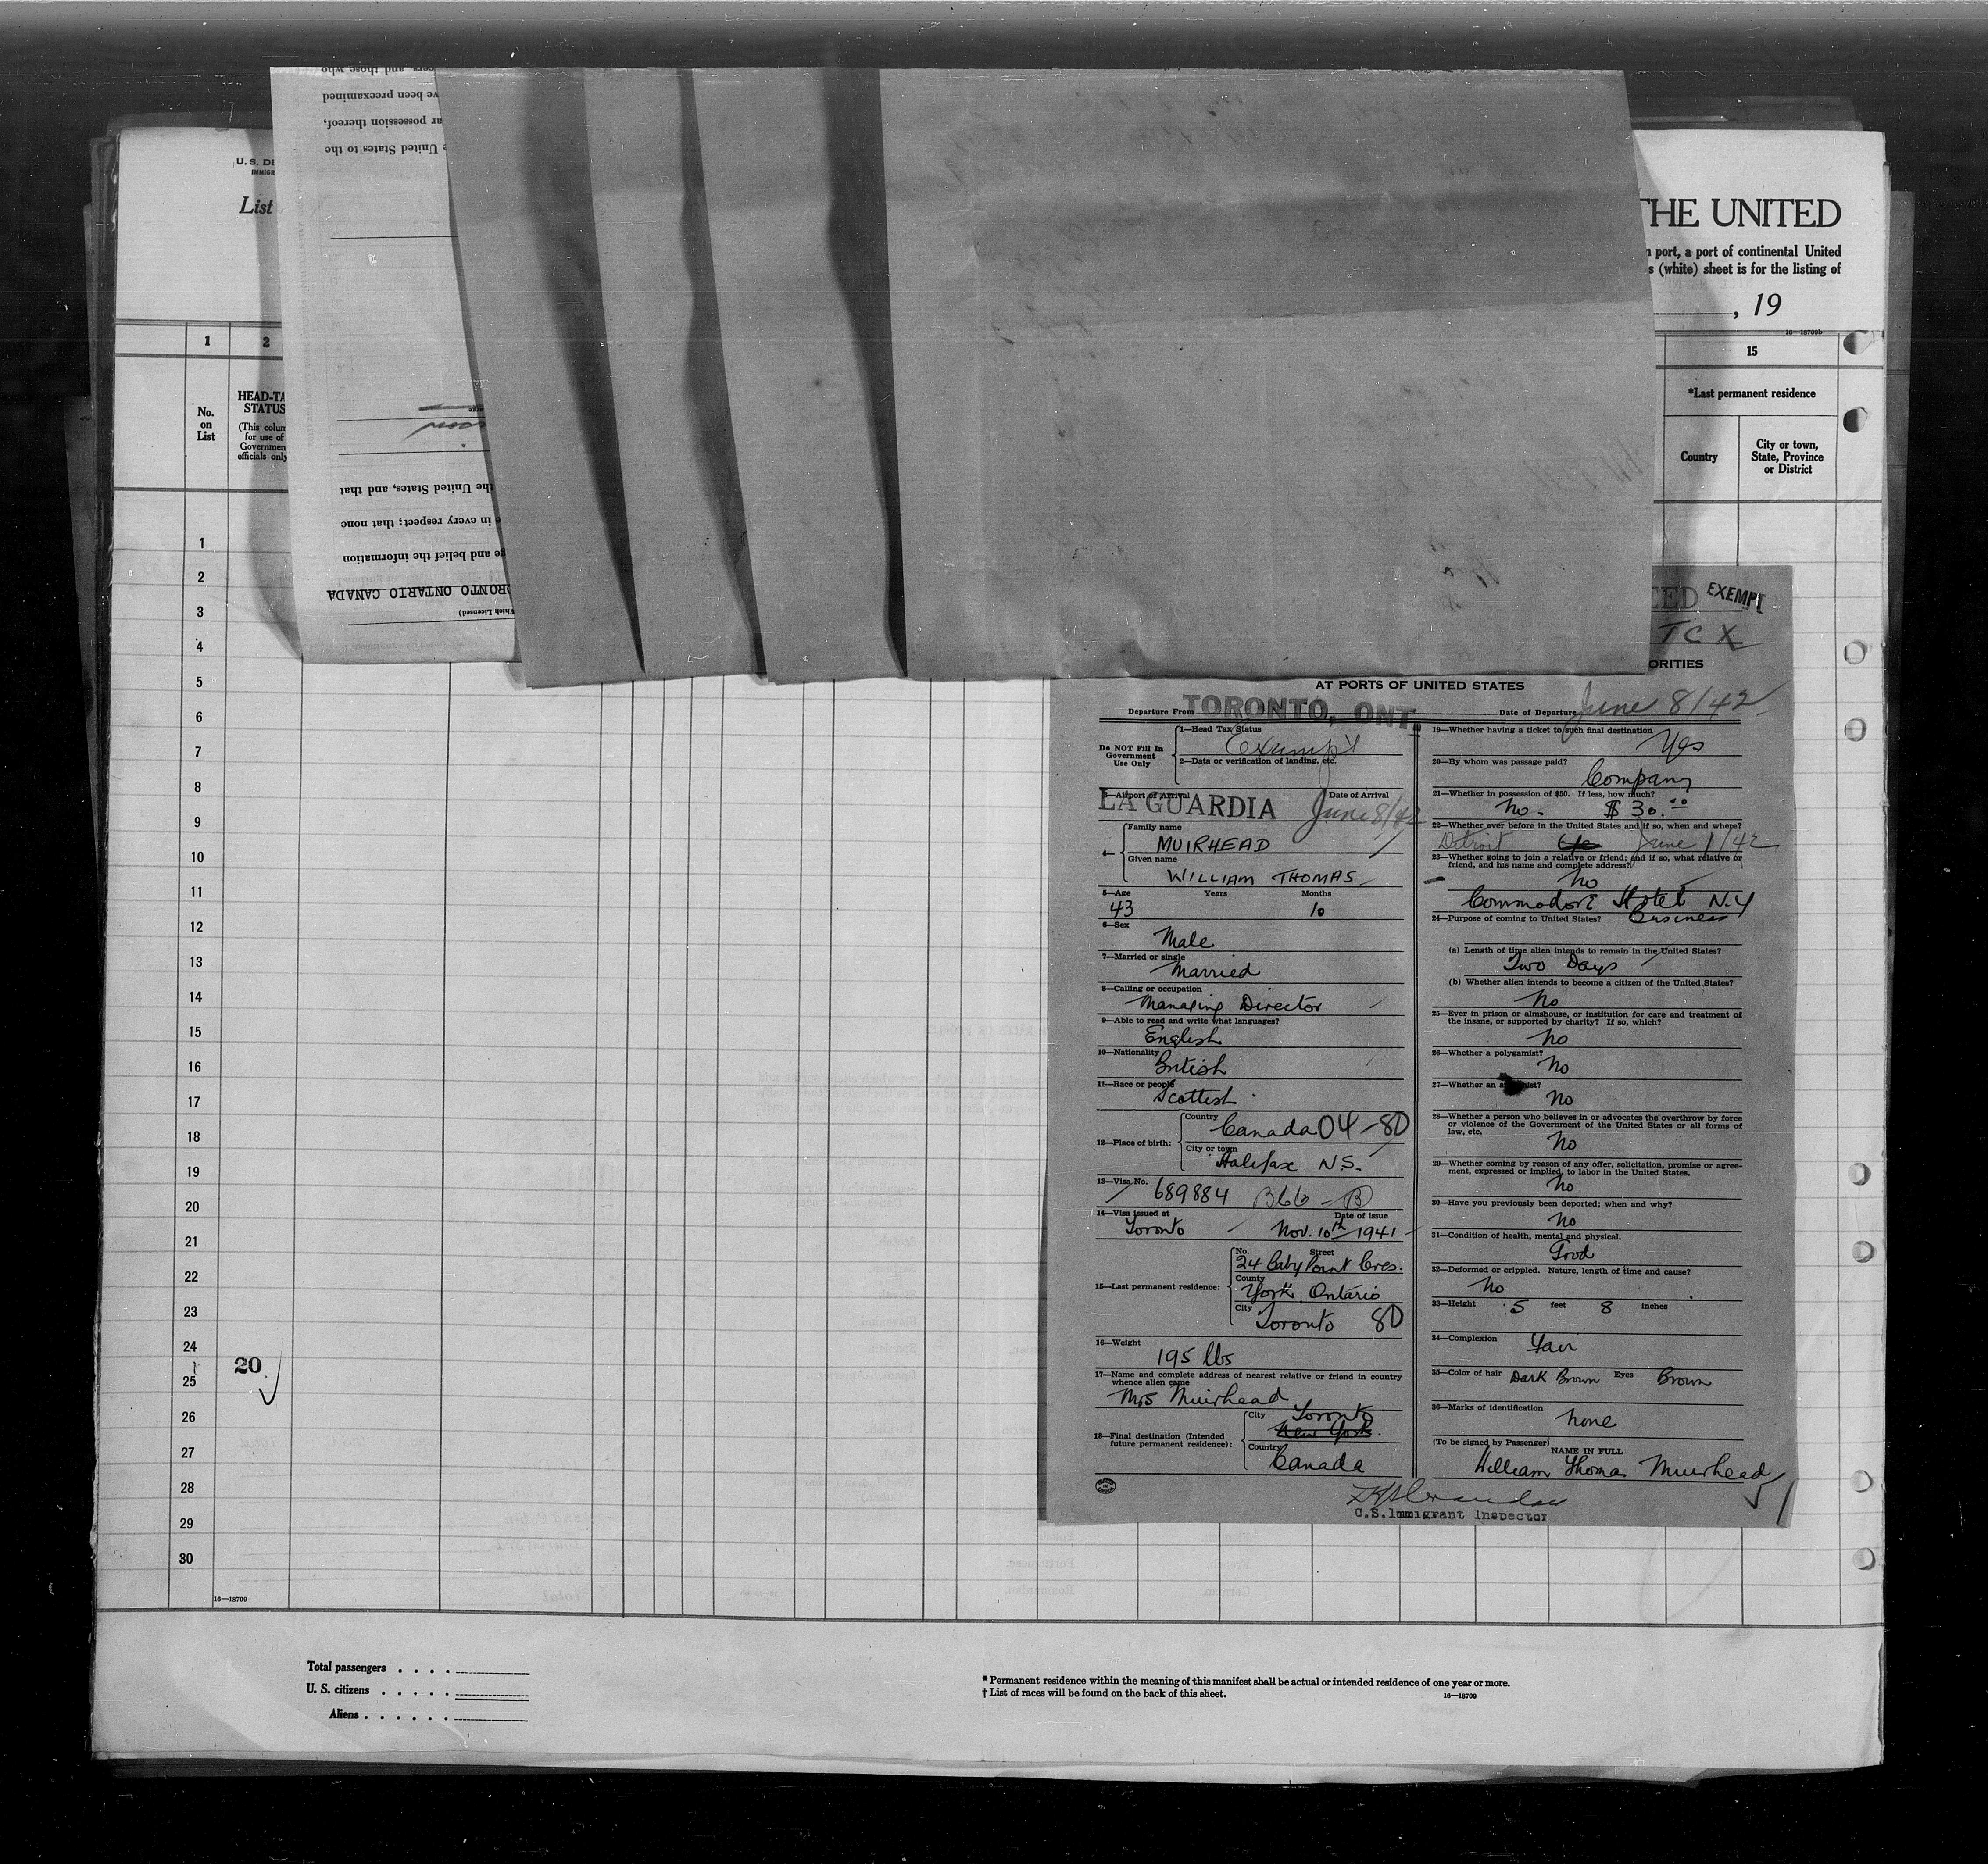 cers and those who
ve been preexamined
ar possession thereof,
United States to the
the United States, and that
in every respect; that none
ge and belief the information
ORONTO ONTARIO CANADA
Which Licensed)
U. S. DE
IMMIGR
List
THE UNITED
n port, a port of continental United
s (white) sheet is for the listing of
, 19
16—18709b
1
2
15
No.
on
List
HEAD-TA
STATUS
(This colum
for use of
Governmen
officials only
*Last permanent residence
Country
City or town,
State, Province
or District
1
2
3
4
5
6
7
8
9
10
11
12
13
14
15
16
17
18
19
20
21
22
23
24
20
25
26
27
28
29
30
16—18709
EED EXEMPT
TC X
ORITIES
AT PORTS OF UNITED STATES
Departure From TORONTO, ONT. Date of Departure June 8/42
Do NOT Fill In
Government
Use Only
1—Head Tax Status
Exempt
2—Data or verification of landing, etc.
3—Airport of Arrival Date of Arrival
LA GUARDIA June 8/42
4—
Family name
MUIRHEAD
Given name
WILLIAM THOMAS
5—Age Years Months
43 10
6—Sex
Male
7—Married or single
Married
8—Calling or occupation
Managing Director
9—Able to read and write what languages?
English
10—Nationality
British
11—Race or people
Scottish
12—Place of birth:
Country
Canada 04-80
City or town
Halifax N.S.
13—Visa No.
689884 B66 - B
14—Visa issued at Date of issue
Toronto Nov. 10th 1941
15—Last permanent residence:
No. Street
24 Baby Point Cres.
County
York Ontario
City
Toronto 80
16—Weight
195 lbs
17—Name and complete address of nearest relative or friend in country
whence alien came
Mrs Muirhead
18—Final destination (Intended
future permanent residence):
City Toronto
New York.
Country
Canada
19—Whether having a ticket to such final destination
Yes
20—By whom was passage paid?
Company
21—Whether in possession of $50. If less, how much?
No. $30.00
22—Whether ever before in the United States and if so, when and where?
Detroit Yes June 1/42
23—Whether going to join a relative or friend; and if so, what relative or
friend, and his name and complete address?
No
Commodore Hotel N.Y
24—Purpose of coming to United States? Business
(a) Length of time alien intends to remain in the United States?
Two Days
(b) Whether alien intends to become a citizen of the United States?
No
25—Ever in prison or almshouse, or institution for care and treatment of
the insane, or supported by charity? If so, which?
No
26—Whether a polygamist?
No
27—Whether an a ist?
No
28—Whether a person who believes in or advocates the overthrow by force
or violence of the Government of the United States or all forms of
law, etc.
No
29—Whether coming by reason of any offer, solicitation, promise or agree-
ment, expressed or implied, to labor in the United States.
No
30—Have you previously been deported; when and why?
No
31—Condition of health, mental and physical.
Good
32—Deformed or crippled. Nature, length of time and cause?
No
33—Height 5 feet 8 inches
34—Complexion Fair
35—Color of hair Dark Brown Eyes Brown
36—Marks of identification
None
(To be signed by Passenger)
NAME IN FULL
William Thomas Muirhead
U.S. Immigrant Inspector
Total passengers . . . .
U. S. citizens . . . . .
Aliens . . . . . .
* Permanent residence within the meaning of this manifest shall be actual or intended residence of one year or more.
† List of races will be found on the back of this sheet. 16—18709